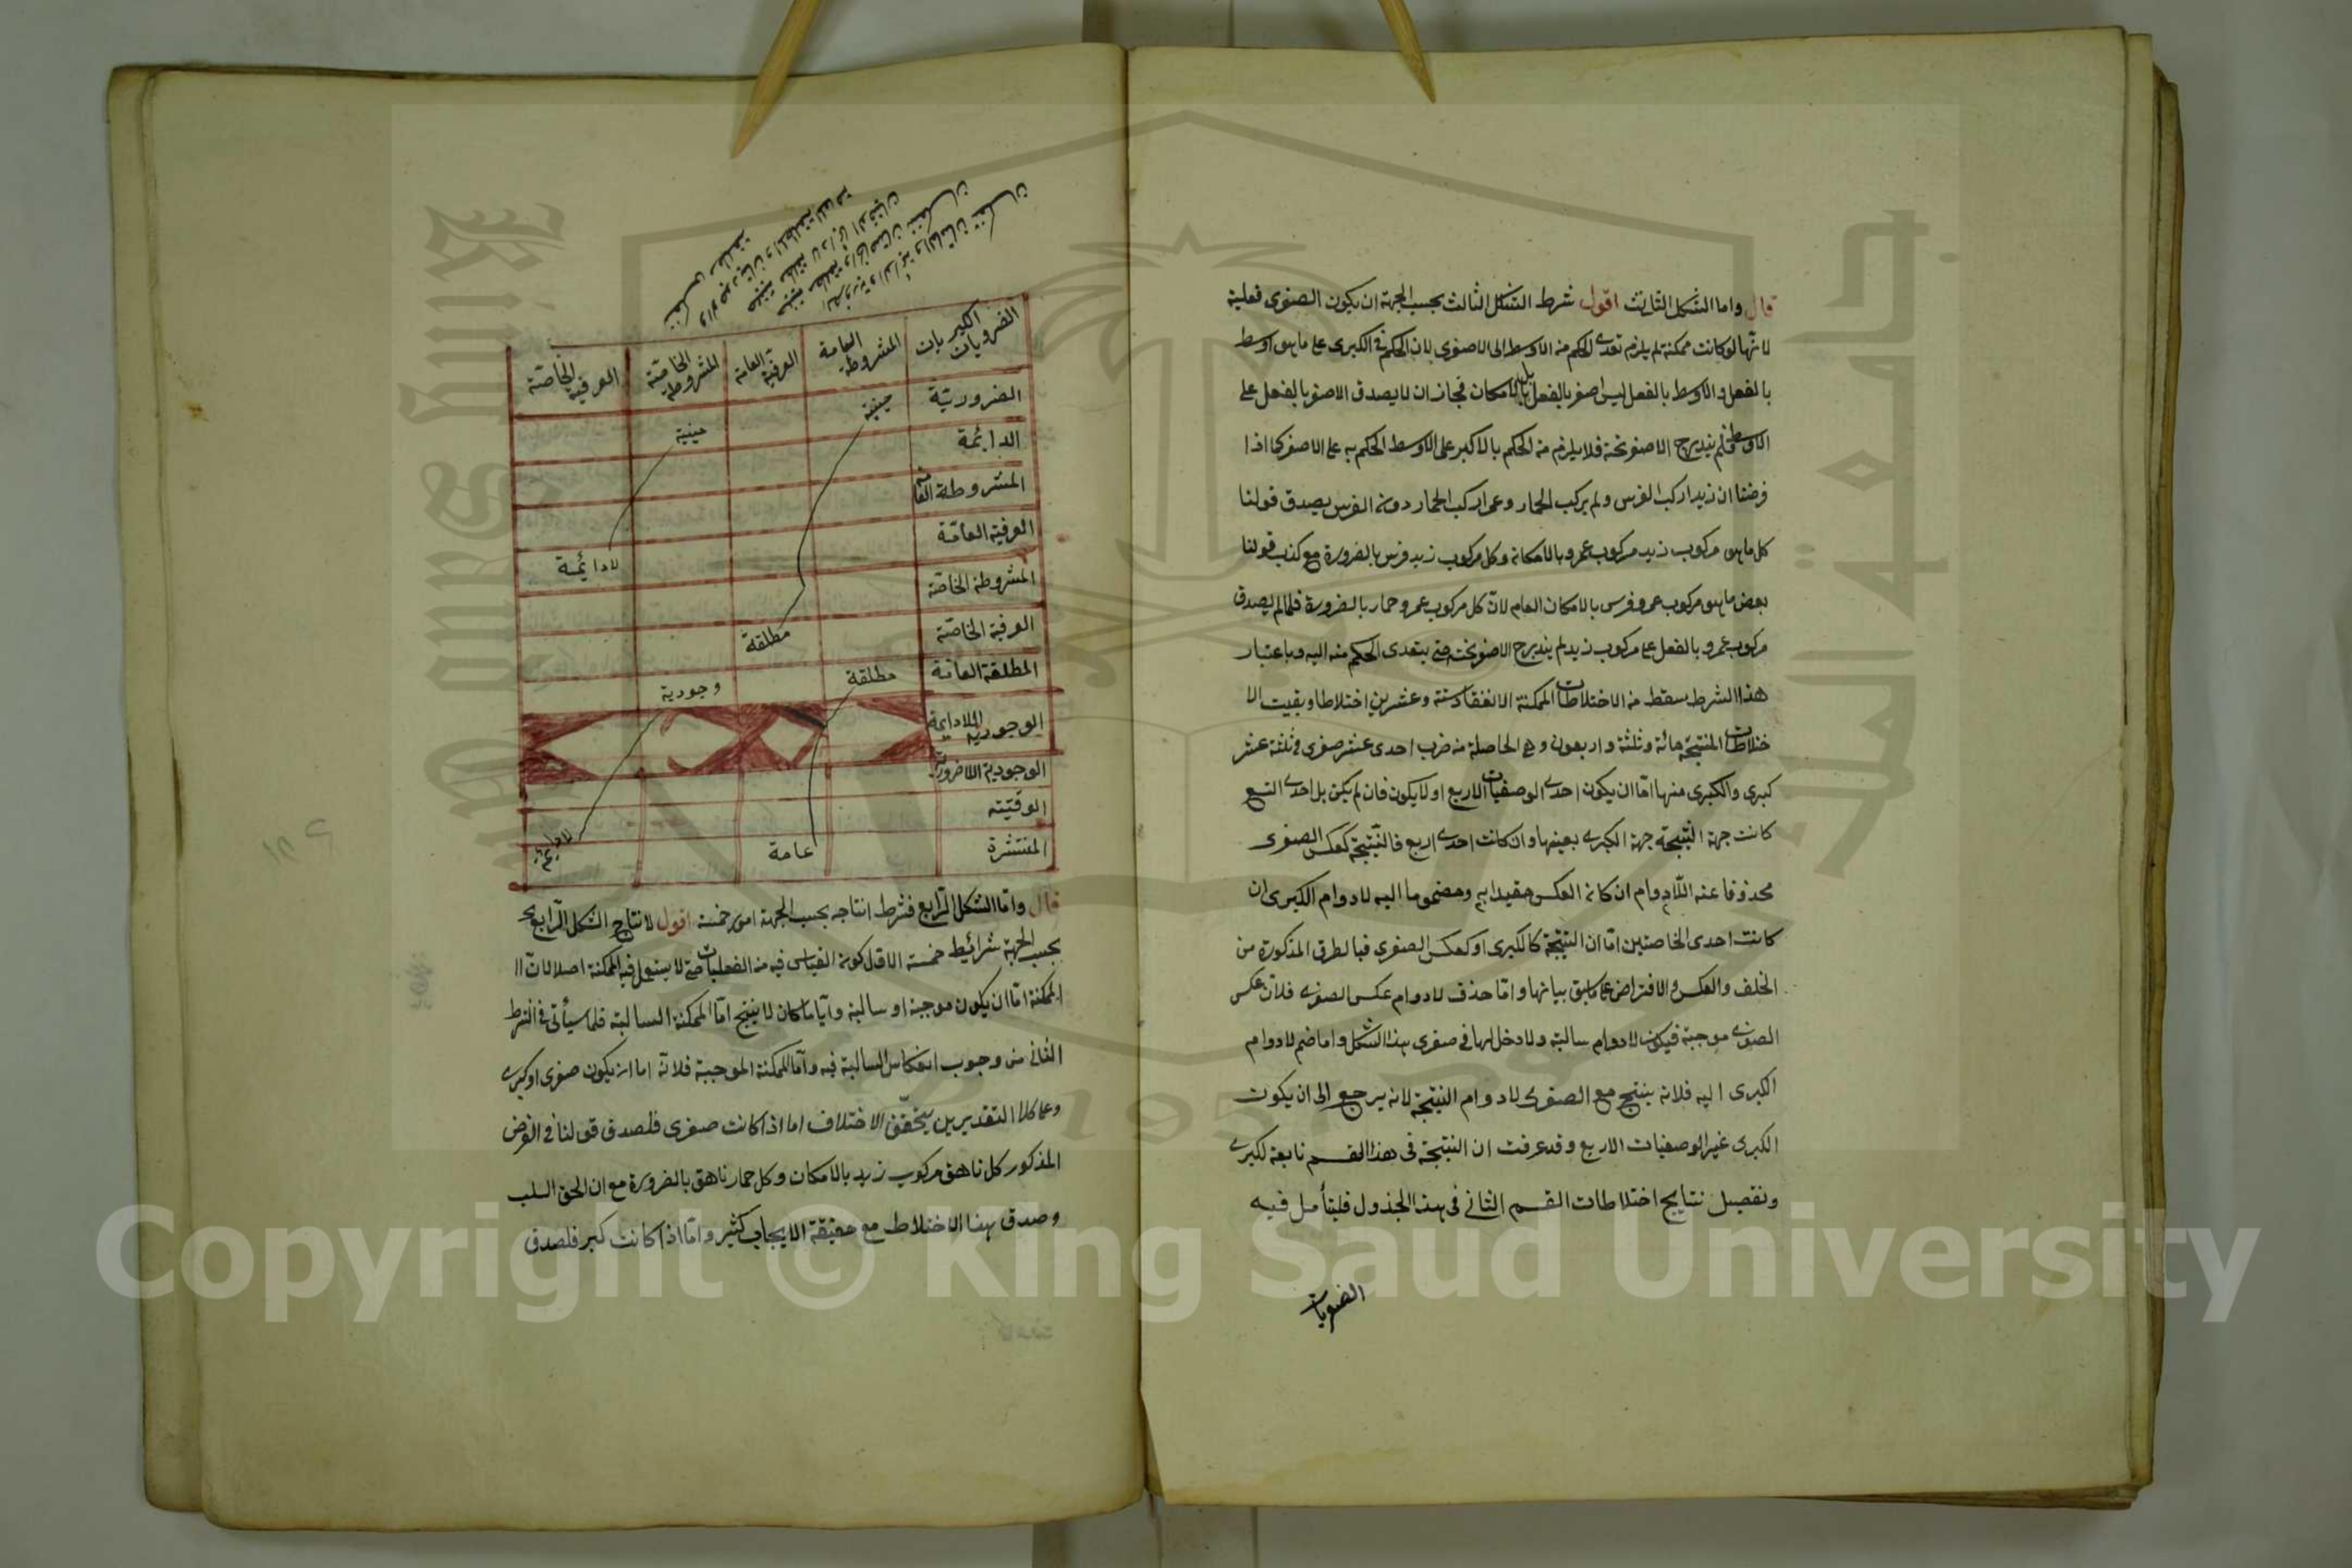 قال واما الشكل الثالث اقول شرط الشكل الثالث بحسب الجهة ان يكون الصغرى فعلية
لانها لو كانت ممكنة لم يلزم تعدى الحكم من الاوسط الى الاصغر لان الحكم فى الكبرى على ما هو اوسط
بالفعل والاوسط بالفعل ليس اصغر بالفعل بل بالامكان فجاز ان لا يصدق الاصغر بالفعل على
الاوسط فلم يندرج الاصغر تحته فلا يلزم من الحكم بالاكبر على الاوسط الحكم به على الاصغر كما اذا
فرضنا ان زيدا ركب الفرس ولم يركب الحمار وعمرا ركب الحمار دون الفرس يصدق قولنا
كل ما هو مركوب زيد مركوب عمرو بالامكان وكل مركوب زيد فرس بالضرورة مع كذب قولنا
بعض ما هو مركوب عمرو فرس بالامكان العام لان كل مركوب عمرو حمار بالضرورة فلما لم يصدق
مركوب عمرو بالفعل على مركوب زيد لم يندرج الاصغر تحته حتى يتعدى الحكم منه اليه وباعتبار
هذا الشرط سقط من الاختلاطات الممكنة الانعقاد ستة وعشرين اختلاطا وبقيت الا
ختلاطات المنتجة مائة وثلثة واربعون وهى الحاصلة من ضرب احدى عشر صغرى فى ثلثة عشر
كبرى والكبرى منها اما ان يكون احدى الوصفيات الاربع او لا يكون فان لم يكن بل احدى التسع
كانت جهة النتيجة جهة الكبرى بعينها وان كانت احدى اربع فالنتيجة كعكس الصغرى
محذوفا عنه اللادوام ان كان العكس مقيدا به ومضموما اليه لادوام الكبرى ان
كانت احدى الخاصتين اما ان النتيجة كالكبرى او كعكس الصغرى فبالطرق المذكورة من
الخلف والعكس والافتراض على ما سبق بيانها واما حذف لادوام عكس الصغرى فلان عكس
الصغرى موجبة فيكون لادوام سالبة ولا دخل لها فى صغرى هذا الشكل واما ضم لادوام
الكبرى اليه فلانه ينتج مع الصغرى لادوام النتيجة لانه يرجع الى ان يكون
الكبرى غير الوصفيات الاربع وقد عرفت ان النتيجة فى هذا القسم تابعة لكبرى
وتفصيل نتايج اختلاطات القسم الثانى فى هذا الجذول فليتأمل فيه
الصغريات
الكبريات
الصغريات
المشروطة العامة
العرفية العامة
المشروطة الخاصة
العرفية الخاصة
الضرورية
حينية
الدايمة
حينية
المشروطة العامة
العرفية العامة
لادايمة
المشروطة الخاصة
العرفية الخاصة
مطلقة
المطلقة العامة
مطلقة
وجودية
الوجودية اللادايمة
الوجودية اللاضرورية
الوقتية
المنتشرة
عامة
لادايمة
قال واما الشكل الرابع فشرط انتاجه بحسب الجهة امور خمسة اقول لانتاج الشكل الرابع
بحسب الجهة شرائط خمسة الاول كون القياس فيه من الفعليات حتى لا يستعمل فيه الممكنة اصلا لان ا
لممكنة اما ان يكون موجبة او سالبة وايا ما كان لا ينتج اما الممكنة السالبة فلما سيأتى فى الشرط
الثانى من وجوب انعكاس السالبة فيه واما الممكنة الموجبة فلانه اما ان يكون صغرى او كبرى
وعلى كلا التقديرين يتحقق الاختلاف اما اذا كانت صغرى فلصدق قولنا فى الفرض
المذكور كل ناهق مركوب زيد بالامكان وكل حمار ناهق بالضرورة مع ان الحق السلب
وصدق بهذا الاختلاط مع حقيقة الايجاب كثير واما اذا كانت كبر فلصدق
Copyright © King Saud University